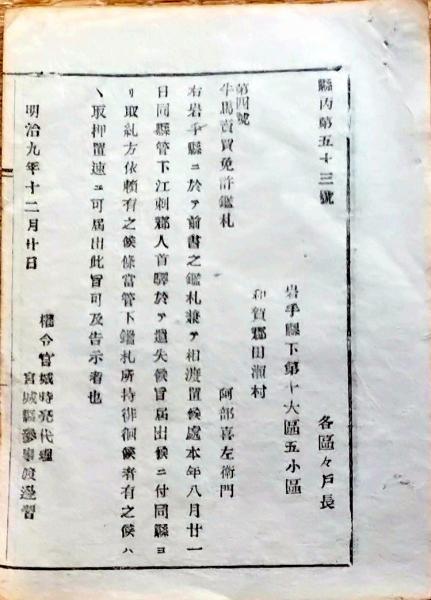 縣丙第五十三號
各區々戶長
岩手縣下第十大區五小區
和賀郡田瀬村
阿部喜左衛門
第四號
牛馬賣買免許鑑札
右岩手縣ニ於テ前書之鑑札兼テ相渡置候處本年八月廿一
日同縣管下江刺郡人首驛於テ遺失候旨届出候ニ付同縣ヨ
リ取糺方依頼有之候條當管下鑑札所持徘徊候者有之候ハ
ヽ取押置速ニ可届出此旨可及告示者也
明治九年十二月廿日
權令宮城時亮代理
宮城縣參事渡邊習